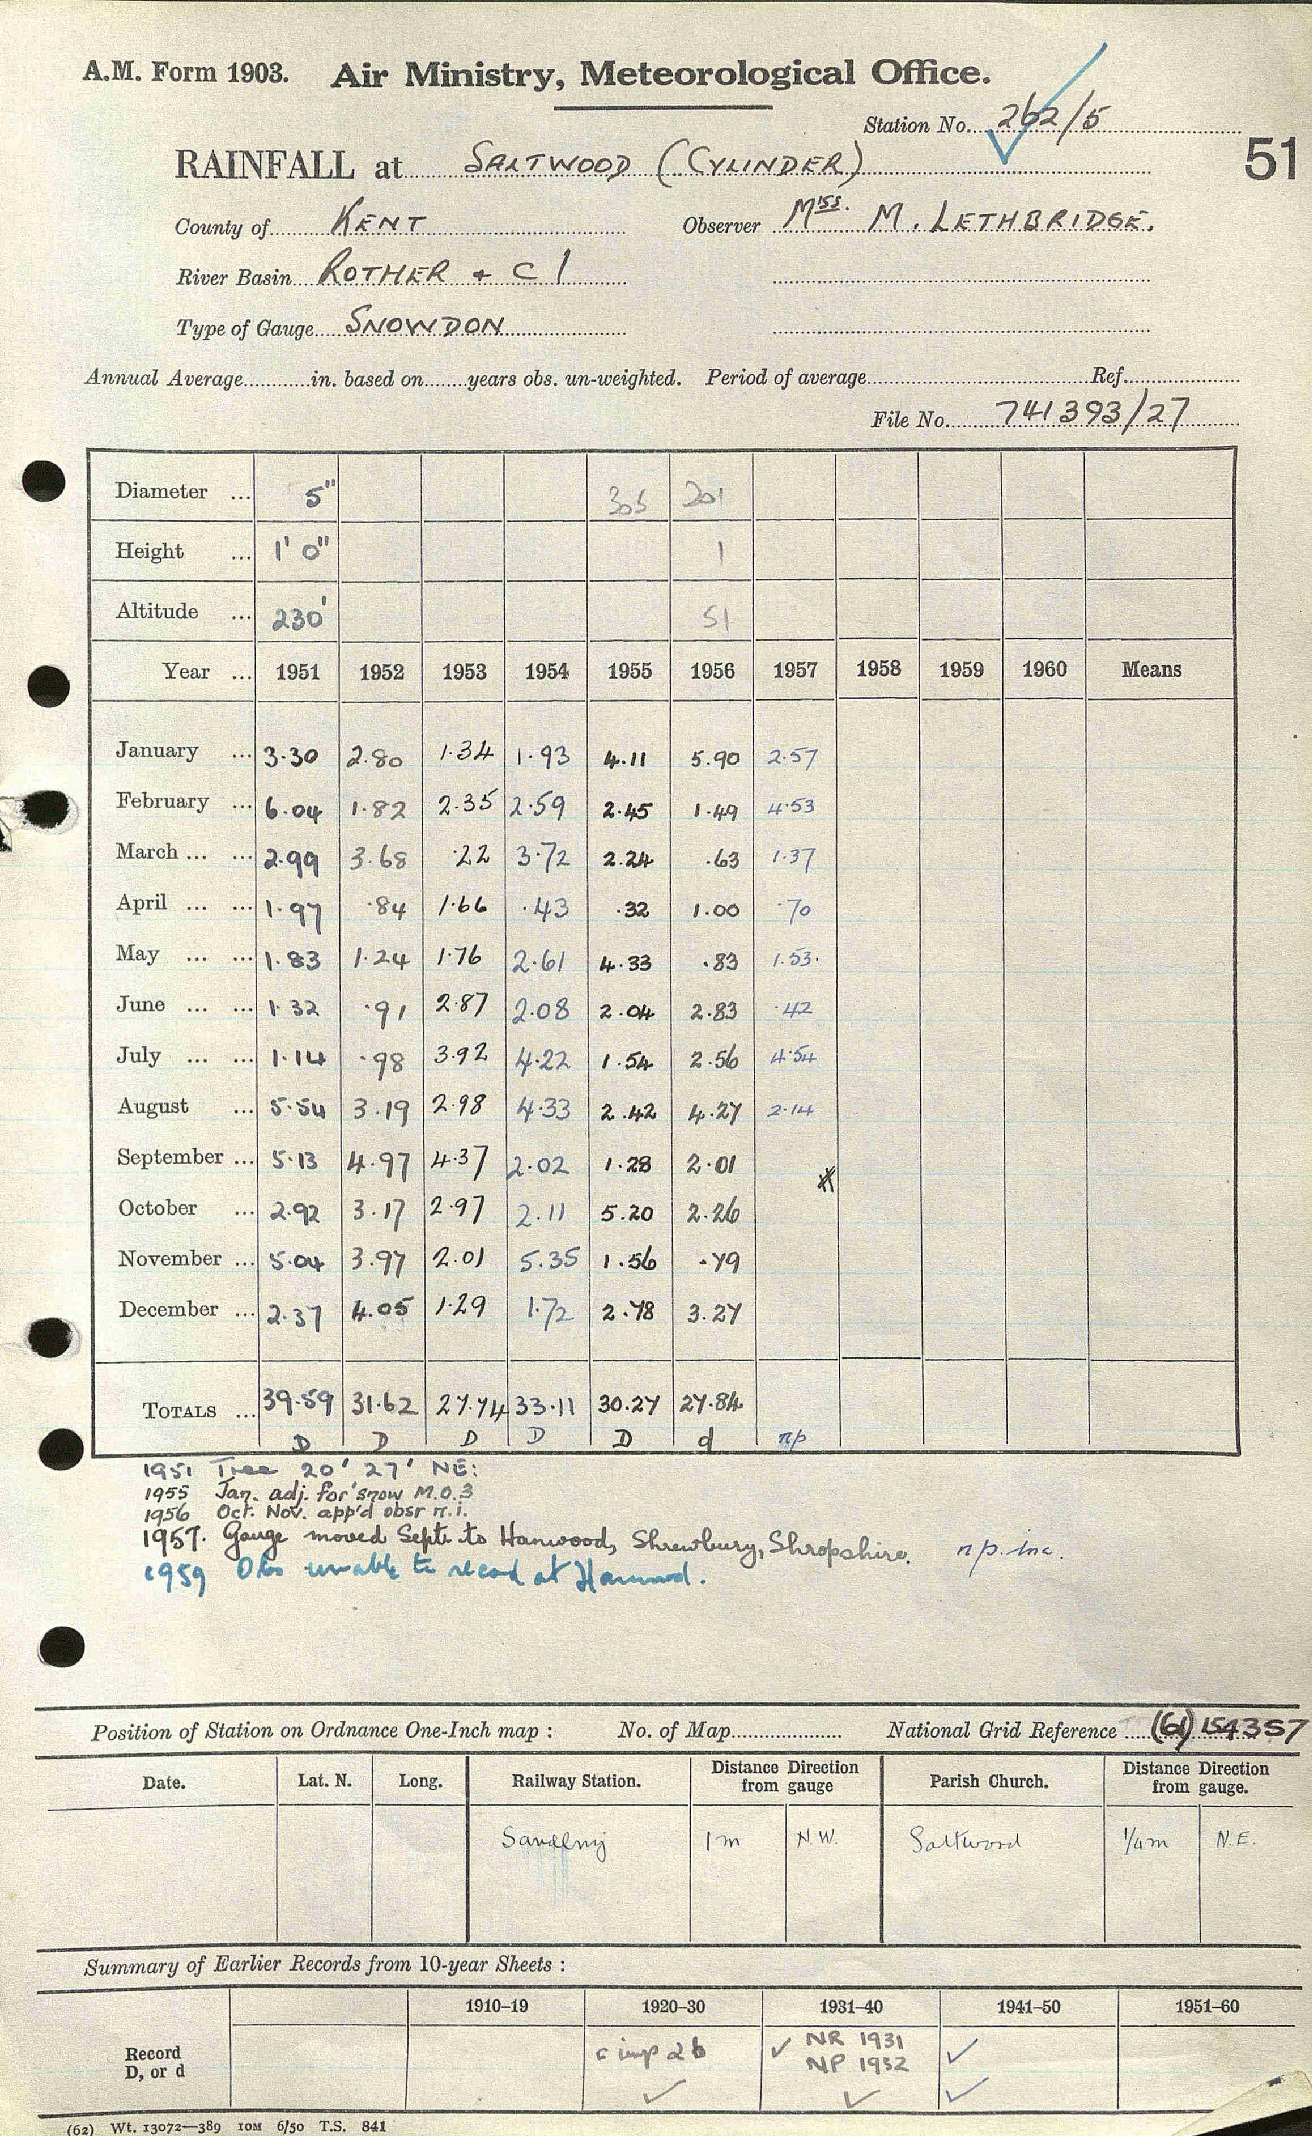 A.M. Form 1903. Air Ministry, Meteorological Office.
Station No. 262/5
RAINFALL at SALTWOOD (CYLINDER)
51
County of KENT Observer Miss. M. LETHBRIDGE.
River Basin ROTHER + C 1
Type of Gauge SNOWDON
Annual Average in. based on years obs. un-weighted. Period of average Ref.
File No. 741393/27
Diameter ... 5" 305 201
Height ... 1' 0" 1
Altitude ... 230' 51
Year ... 1951 1952 1953 1954 1955 1956 1957 1958 1959 1960 Means
January ... 3.30 2.80 1.34 1.93 4.11 5.90 2.57
February ... 6.04 1.82 2.35 2.59 2.45 1.49 4.53
March ... ... 2.99 3.68 .22 3.72 2.24 .63 1.37
April ... ... 1.97 .84 1.66 .43 .32 1.00 .70
May ... ... 1.83 1.24 1.76 2.61 4.33 .83 1.53.
June ... ... 1.32 .91 2.87 2.08 2.04 2.83 .42
July ... ... 1.14 .98 3.92 4.22 1.54 2.56 4.54
August ... 5.54 3.19 2.98 4.33 2.42 4.27 2.14
September ... 5.13 4.97 4.37 2.02 1.28 2.01
October ... 2.92 3.17 2.97 2.11 5.20 2.26
November ... 5.04 3.97 2.01 5.35 1.56 .79
December ... 2.37 4.05 1.29 1.72 2.78 3.27
TOTALS ... 39.59 31.62 27.74 33.11 30.27 27.84
D D D D D d np
1951 Tree 20' 27' NE:
1955 Jan. adj. for snow M.O.3
1956 Oct. Nov. app'd obsr n.i.
1957. Gauge moved Sept. to Hanwood, Shrewbury, Shropshire. n.p. inc.
1959 Obs unable to record at Hanwood.
Position of Station on Ordnance One-Inch map : No. of Map National Grid Reference (61) 154357
Date. Lat. N. Long. Railway Station. Distance Direction from gauge Parish Church. Distance Direction from gauge.
Sandling 1 m N.W. Saltwood 1/4 m N.E.
Summary of Earlier Records from 10-year Sheets :
1910–19 1920–30 1931–40 1941–50 1951–60
Record D, or d c imp 26 ✓ ✓ NR 1931 NP 1932 ✓ ✓ ✓
(62) Wt. 13072—389 10M 6/50 T.S. 841